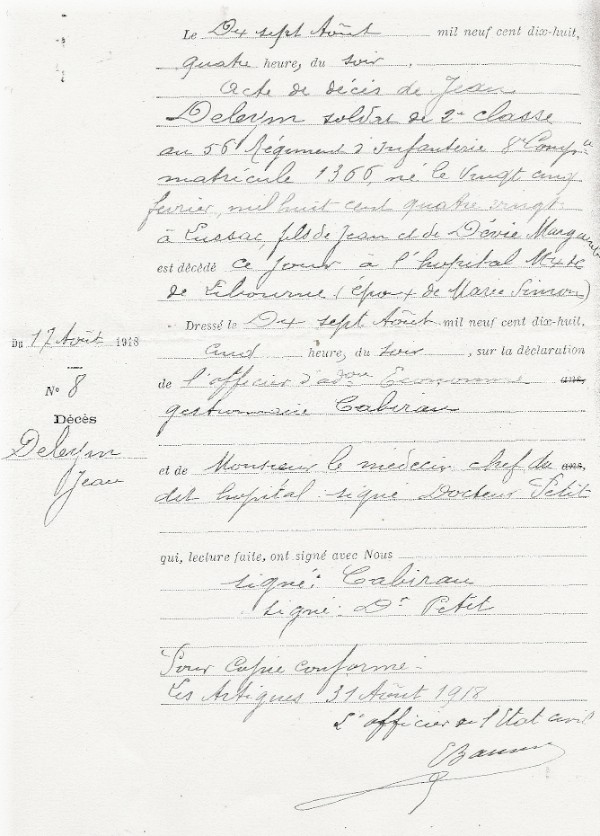 Le Dix sept Août mil neuf cent dix-huit,
quatre heure, du soir,
Acte de décès de Jean
Deleym soldat de 2e classe
au 56e Régiment d'Infanterie 8e Compie
matricule 1366, né le vingt cinq
fevrier, mil huit cent quatre vingt
à Lussac, fils de Jean et de Dévie Marguerite
est décédé ce jour à l'hopital Mxte
de Libourne (époux de Marie Simon)
Dressé le Dix sept Août mil neuf cent dix-huit,
cinq heure, du soir, sur la déclaration
de l'officier d'adon Econome ans,
gestionnaire Cabirau
et de Monsieur le médecin chef du ans,
dit hopital : signé Docteur Petit
qui, lecture faite, ont signé avec Nous
signé : Cabirau
signé : Dr Petit
Pour Copie conforme :
Les Artigues 31 Août 1918
L'officier de l'Etat civil
Du 17 Août 1918
N° 8
Décès
Deleym
Jean